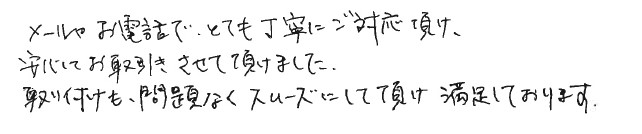 メールや お電話で、とても丁寧にご対応頂け、
安心してお取引きさせて頂けました。
取り付けも、問題なくスムーズにして頂け 満足しております。